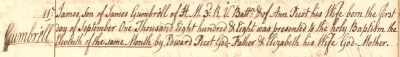 11th James, son of James Gumbrill of H. M. 3. R. V. Battn. & of Ann Picot his Wife born the first
Gumbrill day of September One Thousand Eight hundred & Eight was presented to the holy Baptism the
Eleventh of the same Month by Edward Picot God-Father & Elizabeth his Wife God-Mother.